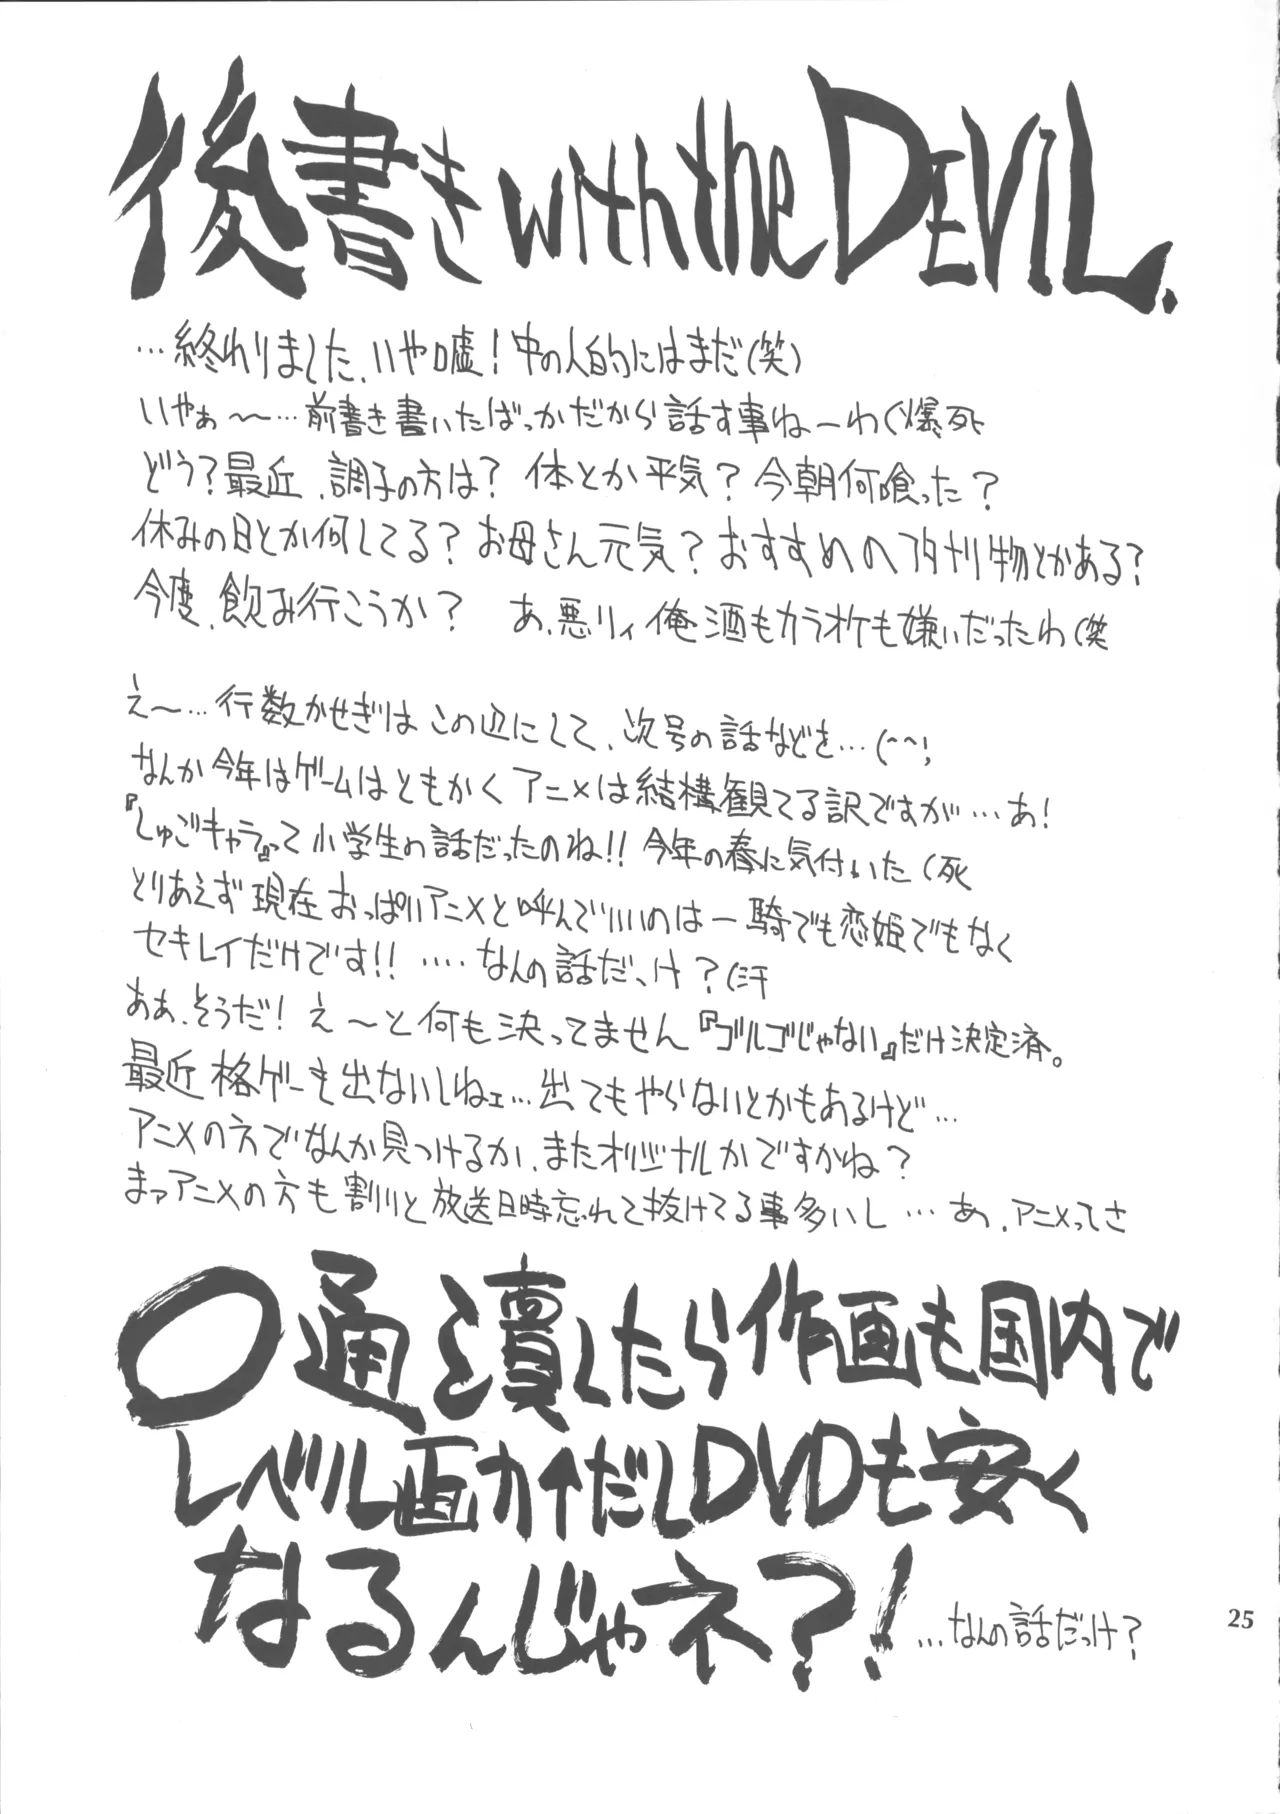 後書き with the DEVIL.
…終わりました、いや嘘！中の人的にはまだ(笑)
いやぁ～～…前書き書いたばっかだから話す事ねーわ(爆死
どう？最近、調子の方は？ 体とか平気？今朝何喰った？
休みの日とか何してる？お母さん元気？おすすめのフタナリ物とかある？
今度、飲み行こうか？ あ、悪リィ俺酒もカラオケも嫌いだったわ(笑
え～…行数かせぎはこの辺にして、次号の話などを…(^^;
なんか今年はゲームはともかくアニメは結構観てる訳ですが…あ！
『しゅごキャラ』って小学生の話だったのね!!今年の春に気付いた(死
とりあえず現在おっぱいアニメと呼んでいいのは一騎でも恋姫でもなく
セキレイだけです!!‥‥なんの話だっけ？(汗
ああ、そうだ！え～と何も決ってません『ゴルゴじゃない』だけ決定済。
最近格ゲーも出ないしねェ…出てもやらないとかもあるけど…
アニメの方でなんか見つけるか、またオリジナルかですかね？
まァアニメの方も割りと放送日時忘れて抜けてる事多いし…あ、アニメってさ
〇通と潰したら作画も国内で
レベル画力↑だしDVDも安く
なるんじゃネ？！
…なんの話だっけ？
25